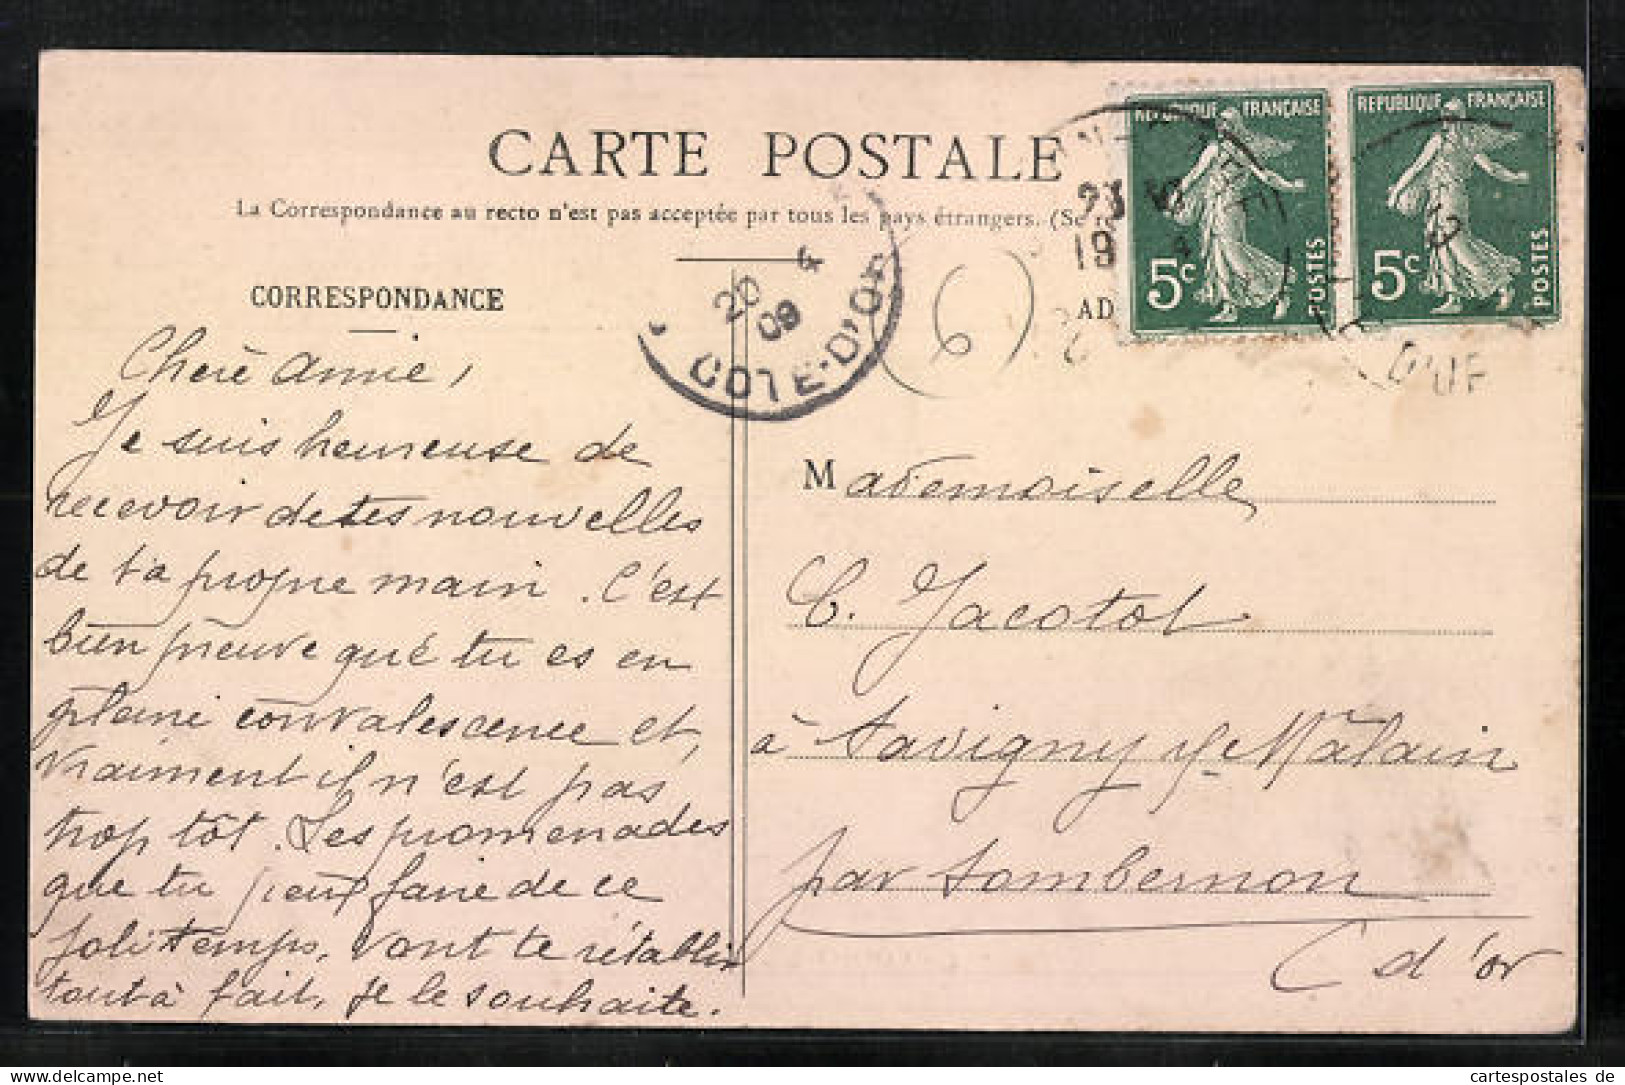 CARTE POSTALE
La Correspondance au recto n'est pas acceptée par tous les pays étrangers. (Se
CORRESPONDANCE
AD
REPUBLIQUE FRANÇAISE
5c
POSTES
REPUBLIQUE FRANÇAISE
5c
POSTES
20 4
09
COTE-D'OR
23 30
19 4
(6)
Chère Annie,
Je suis heureuse de
recevoir de tes nouvelles
de ta propre main. C'est
bien preuve que tu es en
pleine convalescence et,
vraiment il n'est pas
trop tôt. Les promenades
que tu peux faire de ce
joli temps, vont te rétablir
tout à fait, je le souhaite.
Mademoiselle
C. Jacotot
à Savigny s/ Mâlain
par Sombernon
C d'or
cartespostales de